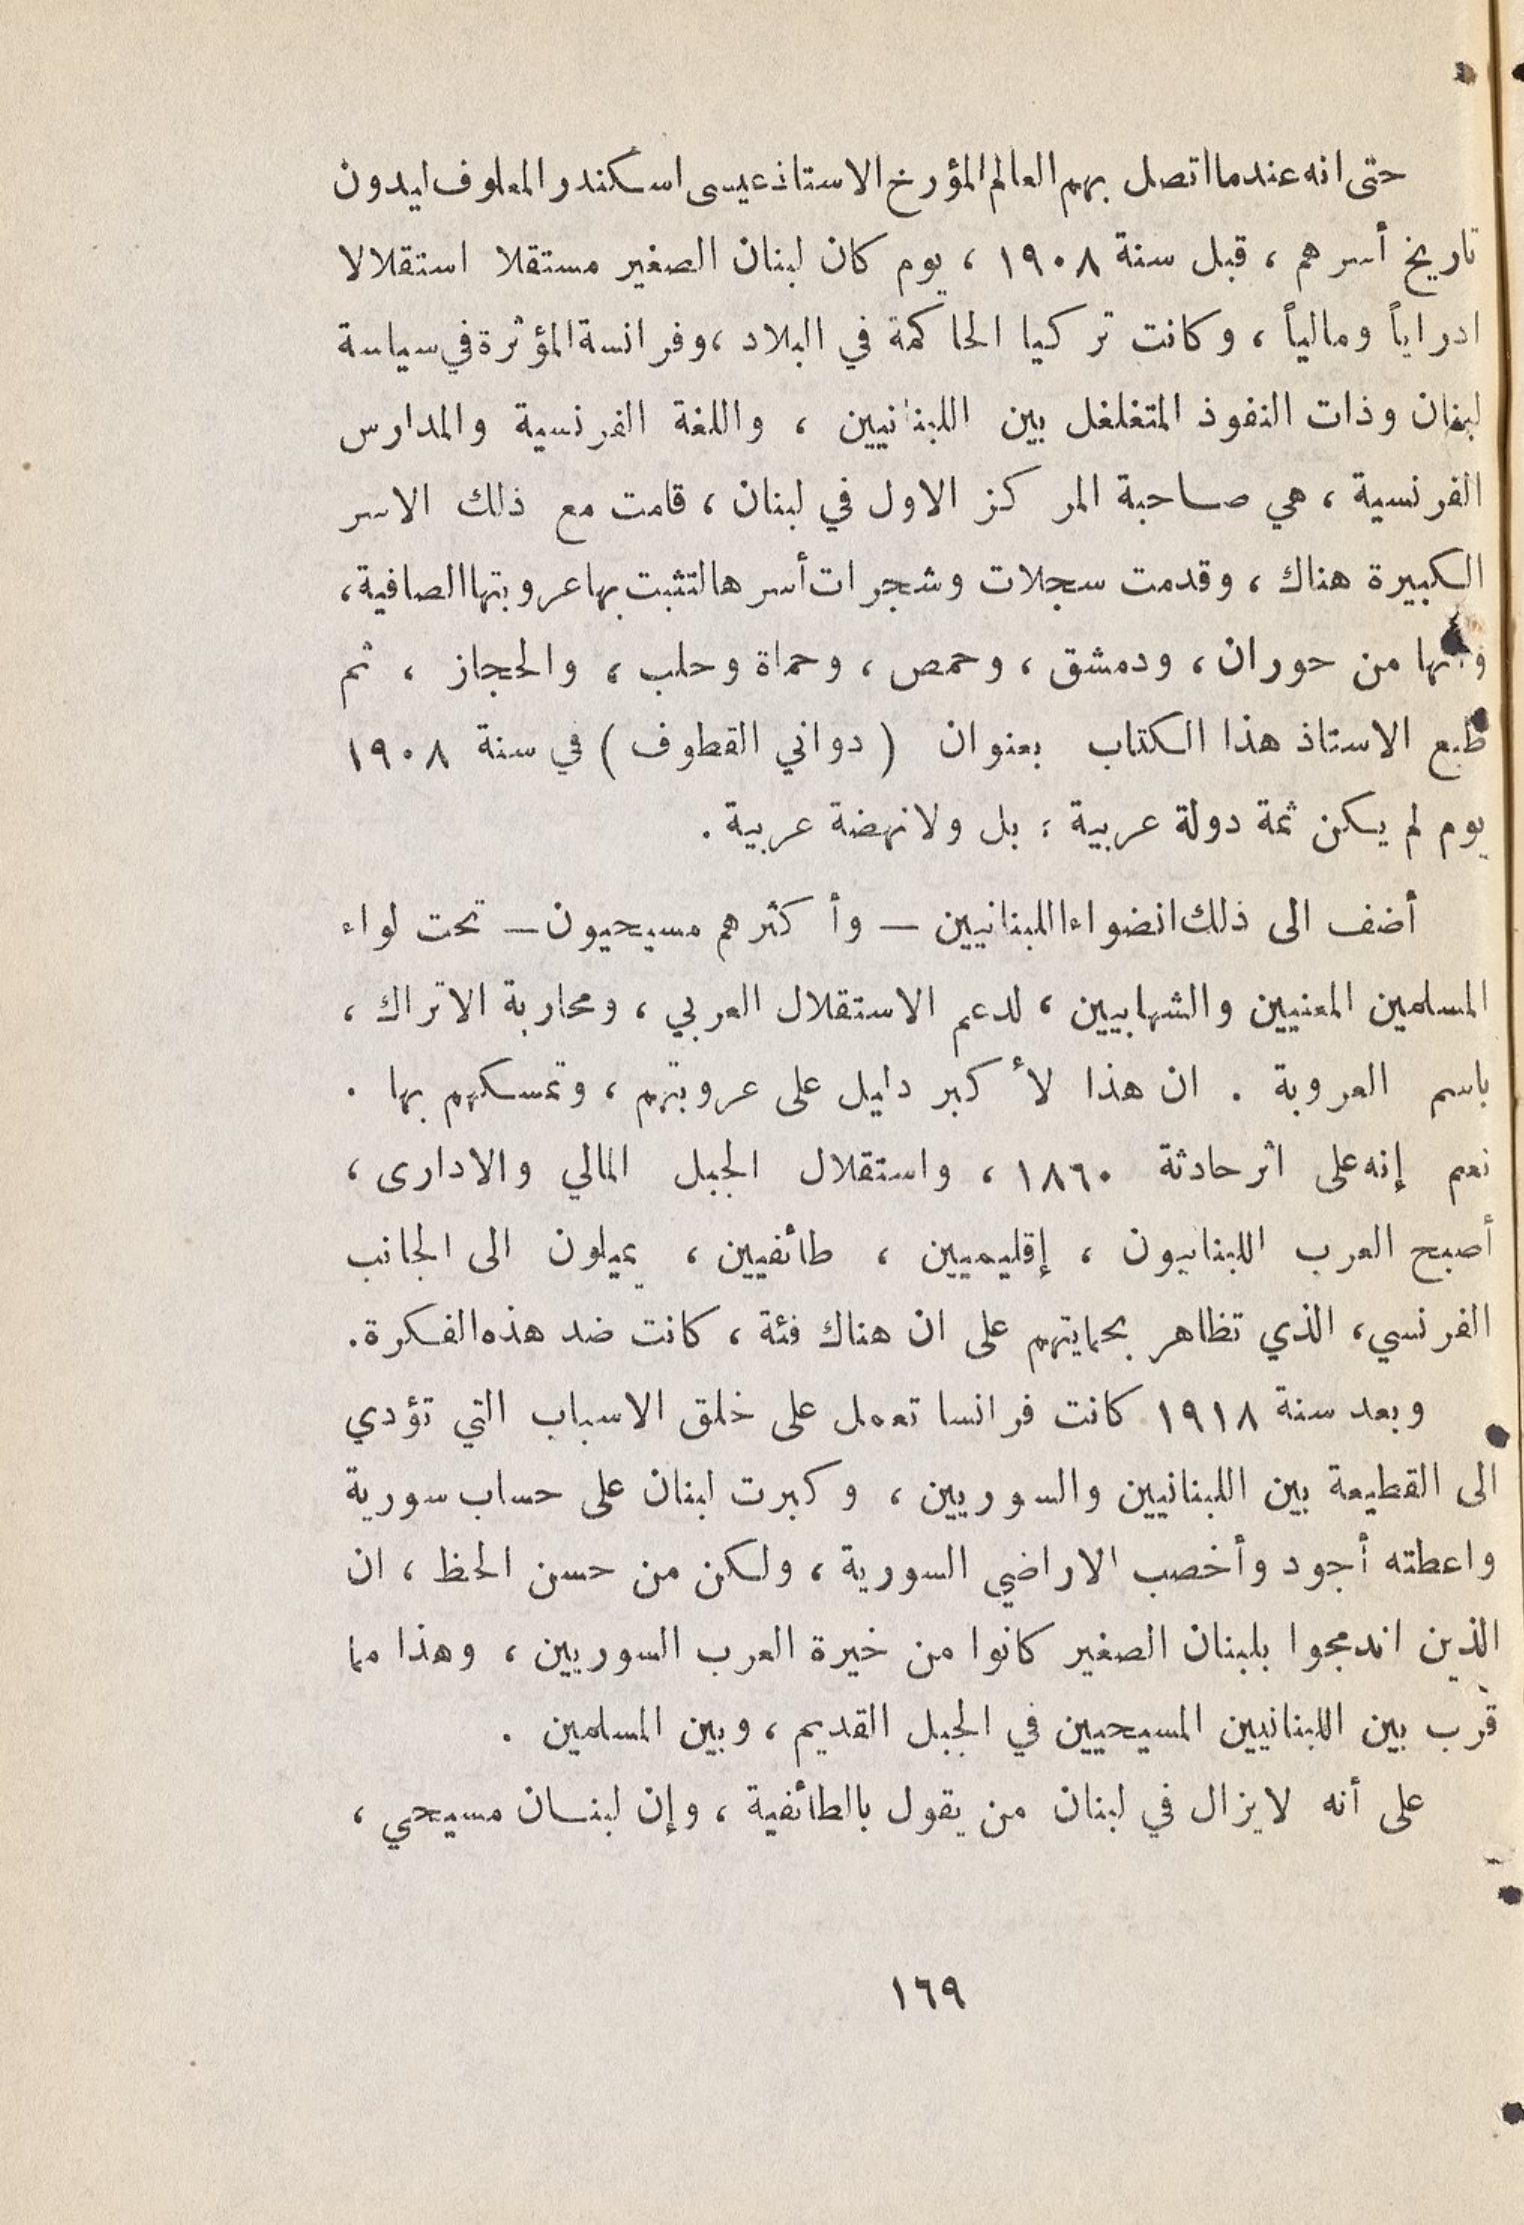 حتى انه عندما اتصل بهم العالم المؤرخ الاستاذ عيسى اسكندر المعلوف ليدون
تاريخ أسرهم ، قبل سنة ١٩٠٨ ، يوم كان لبنان الصغير مستقلا استقلالا
ادراياً ومالياً ، وكانت تركيا الحاكمة في البلاد ، وفرانسة المؤثرة في سياسة
لبنان وذات النفوذ المتغلغل بين اللبنانيين ، واللغة الفرنسية والمدارس
الفرنسية ، هي صاحبة المركز الاول في لبنان ، قامت مع ذلك الاسر
الكبيرة هناك ، وقدمت سجلات وشجرات أسرها لتثبت بها عروبتها الصافية ،
وأنها من حوران ، ودمشق ، وحمص ، وحماة وحلب ، والحجاز ، ثم
طبع الاستاذ هذا الكتاب بعنوان ( دواني القطوف ) في سنة ١٩٠٨
يوم لم يكن ثمة دولة عربية ؛ بل ولا نهضة عربية .
أضف الى ذلك انضواء اللبنانيين — وأكثرهم مسيحيون — تحت لواء
المسلمين المعنيين والشهابيين ، لدعم الاستقلال العربي ، ومحاربة الاتراك ،
باسم العروبة . ان هذا لأكبر دليل على عروبتهم ، وتمسكهم بها .
نعم إنه على اثر حادثة ١٨٦٠ ، واستقلال الجبل المالي والادارى ،
أصبح العرب اللبنانيون ، إقليميين ، طائفيين ، يميلون الى الجانب
الفرنسي ، الذي تظاهر بحمايتهم على ان هناك فئة ، كانت ضد هذه الفكرة .
وبعد سنة ١٩١٨ كانت فرانسا تعمل على خلق الاسباب التي تؤدي
الى القطيعة بين اللبنانيين والسوريين ، وكبرت لبنان على حساب سورية
واعطته أجود وأخصب الاراضي السورية ، ولكن من حسن الحظ ، ان
الذين اندمجوا بلبنان الصغير كانوا من خيرة العرب السوريين ، وهذا مما
قرب بين اللبنانيين المسيحيين في الجبل القديم ، وبين المسلمين .
على أنه لا يزال في لبنان من يقول بالطائفية ، وإن لبنان مسيحي ،
١٦٩